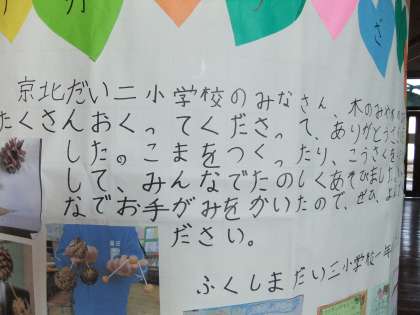 京北だい二小学校のみなさん、木のみや
たくさんおくってくださって、ありがとう
した。こまをつくったり、こうさくを
して、みんなでたのしくあそびました。
なでお手がみをかいたので、ぜひ、よ
ださい。
ふくしまだい三小学校一年